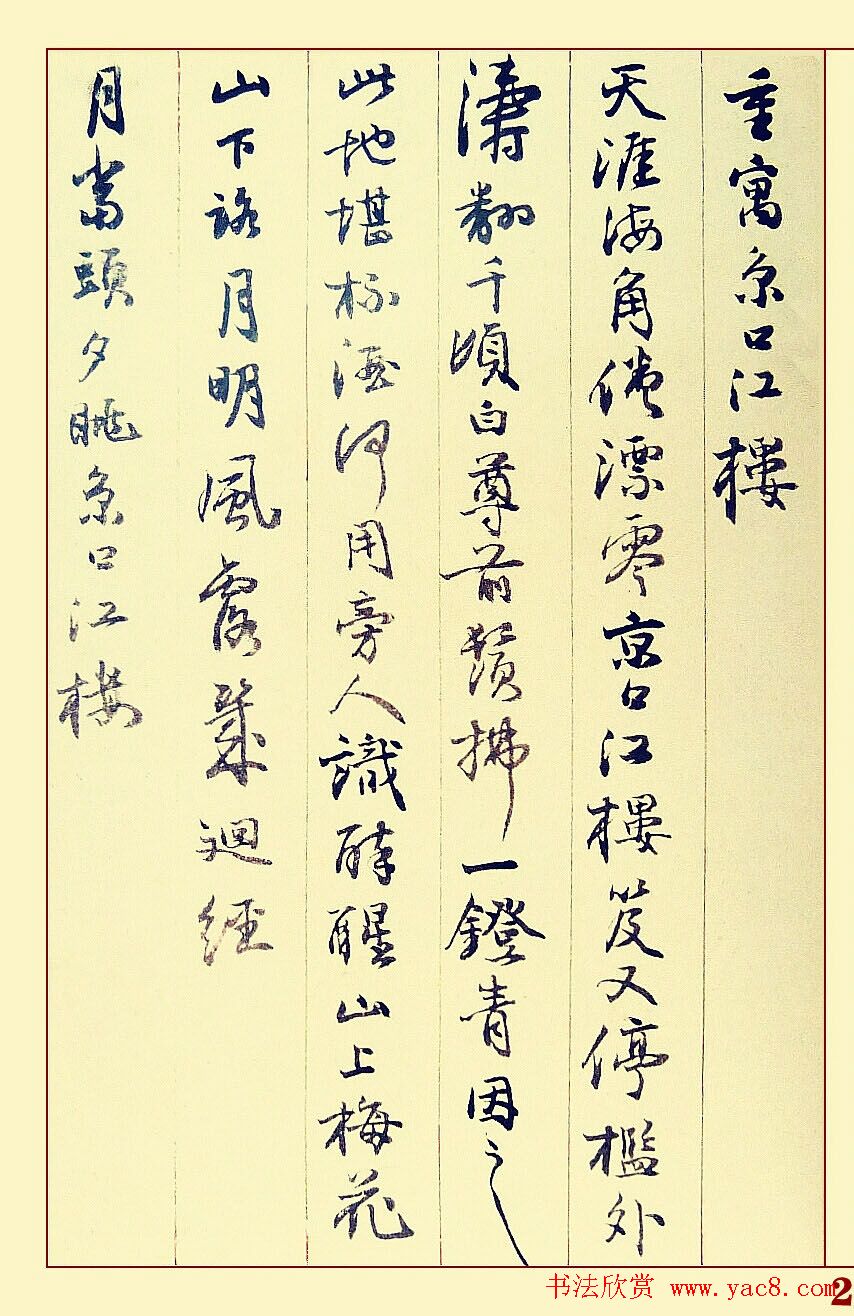 重寓京口江樓
天涯海角倦漂零京口江樓笈又停檻外
濤翻千頃白尊前鬢拂一鐙青因之
此地堪酒何用旁人識醉醒山上梅花
山下路月明風露幾迴經
月當頭夕眺京口江樓
书法欣赏 www.yac8.com 2